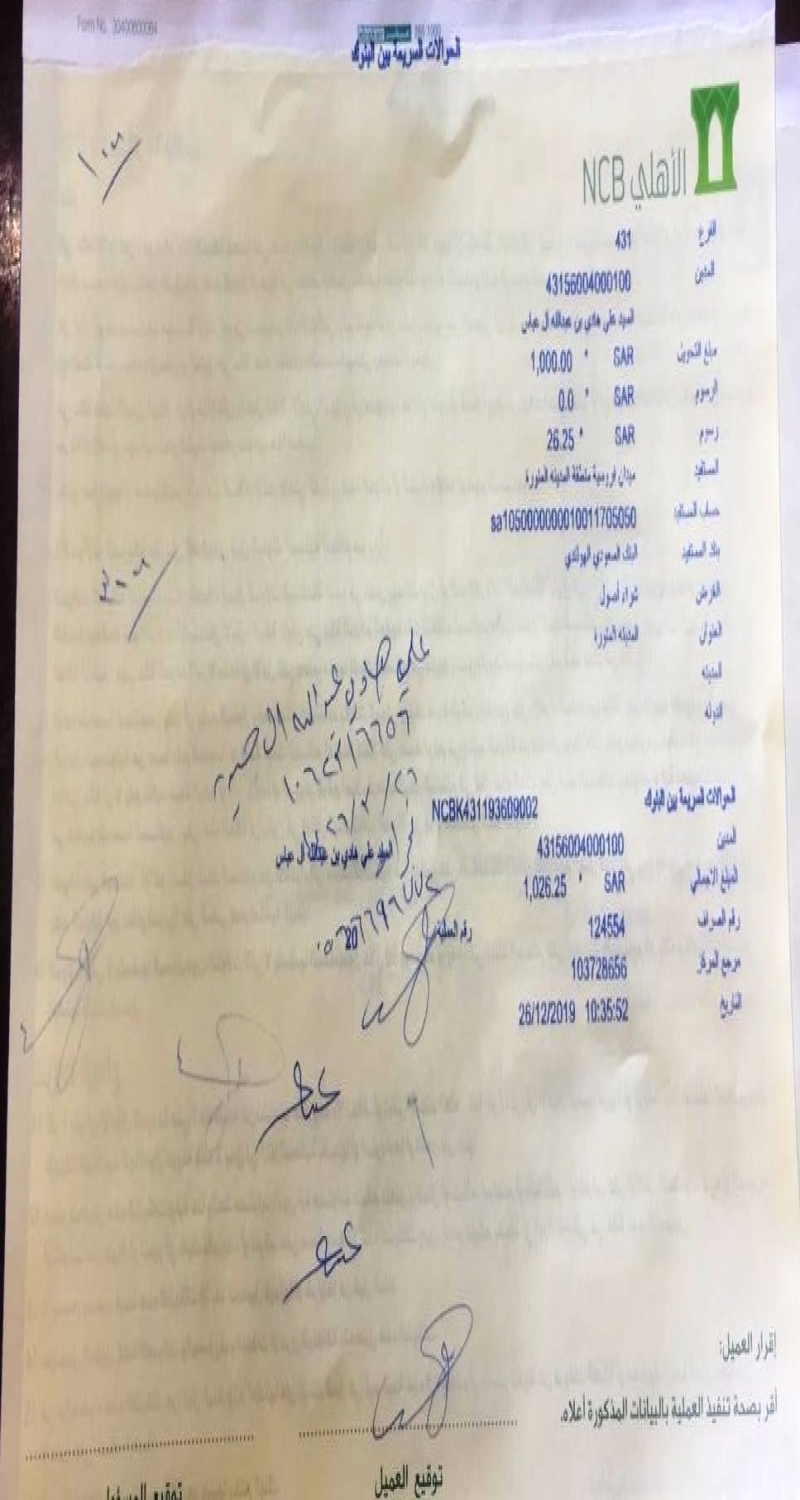 Form No. 30400600064
الحوالات السريعة بين البنوك
١٠٠٠
الأهلي NCB
الفرع 431
المدين 43156004000100
السيد علي هادي بن عبدالله ال عباس
مبلغ التحويل SAR * 1,000.00
الرسوم SAR * 0.0
رسوم SAR * 26.25
المستفيد ميدان فروسية منطقة المدينه المنورة
حساب المستفيد sa1050000000010011705050
بنك المستفيد البنك السعودي الهولندي
الغرض شراء أصول
العنوان المدينه المنورة
المدينه
الدوله
علي هادي عبدالله ال
الحوالات السريعة بين البنوك NCBK431193609002
المدين 43156004000100
السيد علي هادي بن عبدالله ال عباس
المبلغ الاجمالي SAR * 1,026.25
رقم الصراف 124554 رقم العملية 20
مرجع المركز 103728656
التاريخ 26/12/2019 10:35:52
إقرار العميل:
أقر بصحة تنفيذ العملية بالبيانات المذكورة أعلاه.
توقيع العميل توقيع المسؤول